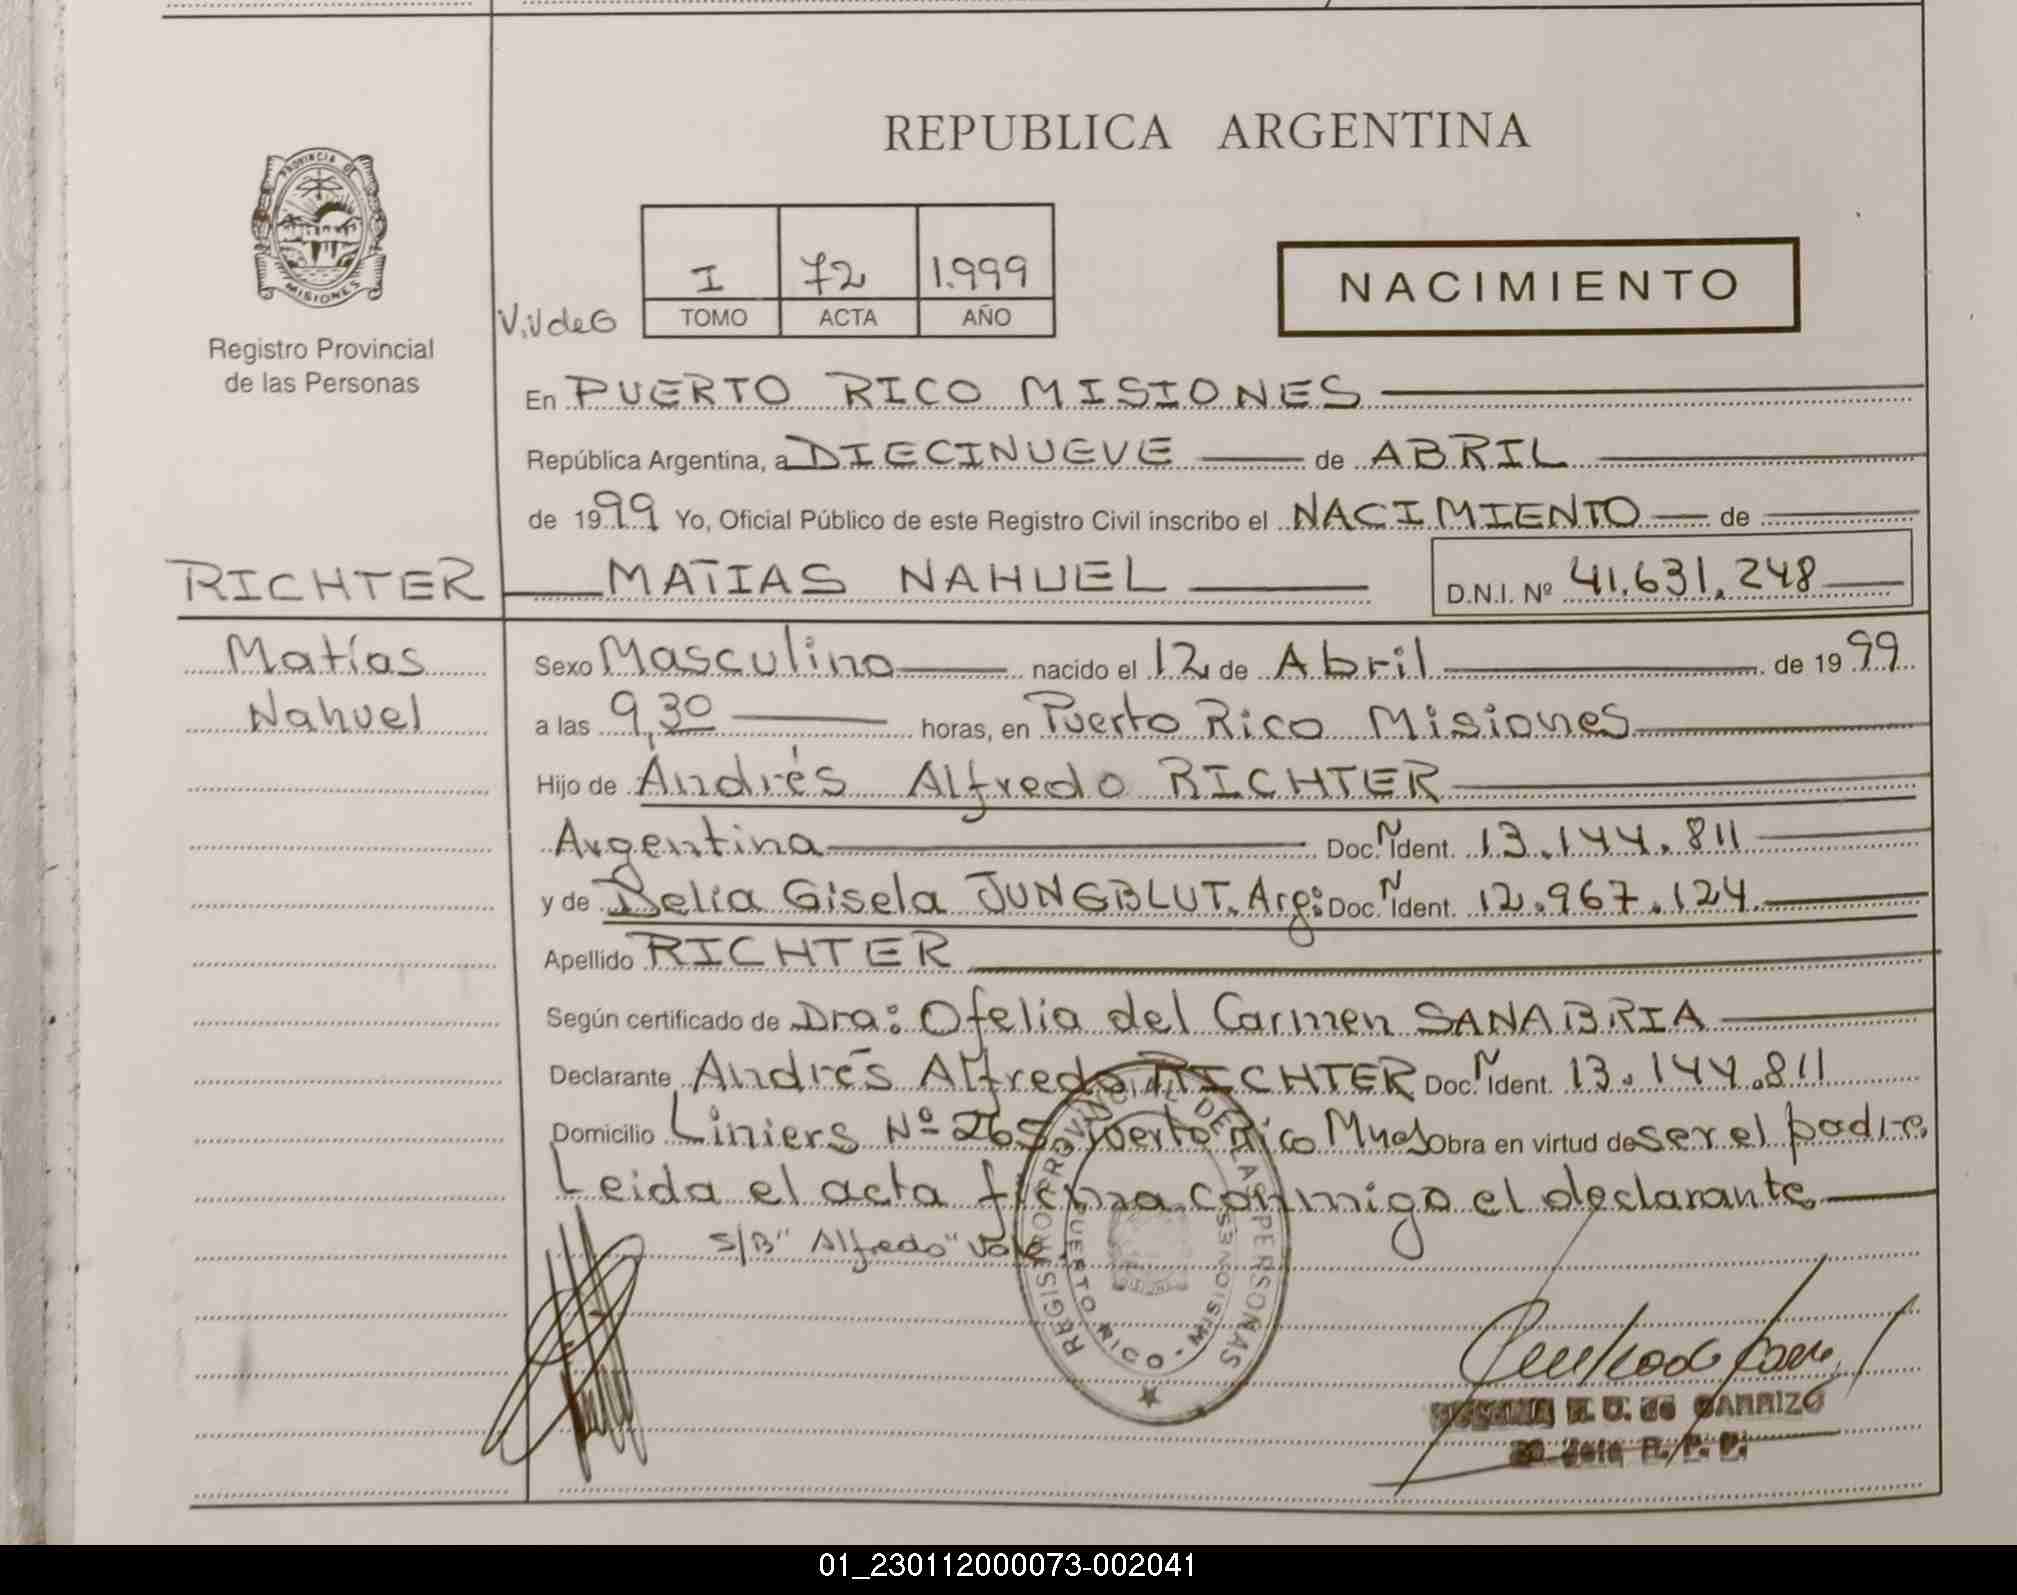 REPUBLICA ARGENTINA
PROVINCIA DE
MISIONES
Registro Provincial
de las Personas
I 72 1.999
TOMO ACTA AÑO
V.V de G
NACIMIENTO
En PUERTO RICO MISIONES
República Argentina, a DIECINUEVE de ABRIL
de 1999 Yo, Oficial Público de este Registro Civil inscribo el NACIMIENTO de
RICHTER MATIAS NAHUEL D.N.I. Nº 41.631.248
Matías
Nahuel
Sexo Masculino nacido el 12 de Abril de 1999
a las 9,30 horas, en Puerto Rico Misiones
Hijo de Andrés Alfredo RICHTER
Argentina Doc. N Ident. 13.144.811
y de Delia Gisela JUNGBLUT. Arg: Doc. N Ident. 12.967.124
Apellido RICHTER
Según certificado de Dra: Ofelia del Carmen SANABRIA
Declarante Andrés Alfredo RICHTER Doc. N Ident. 13.144.811
Domicilio Liniers Nº 265 Puerto Rico Mnes Obra en virtud de ser el padre.
Leida el acta firma conmigo el declarante
S/B "Alfredo" Vale.
REGISTRO PROVINCIAL DE LAS PERSONAS
PUERTO RICO - MISIONES
R. U. de CARRIZO
Jefe R. P. P.
01_230112000073-002041